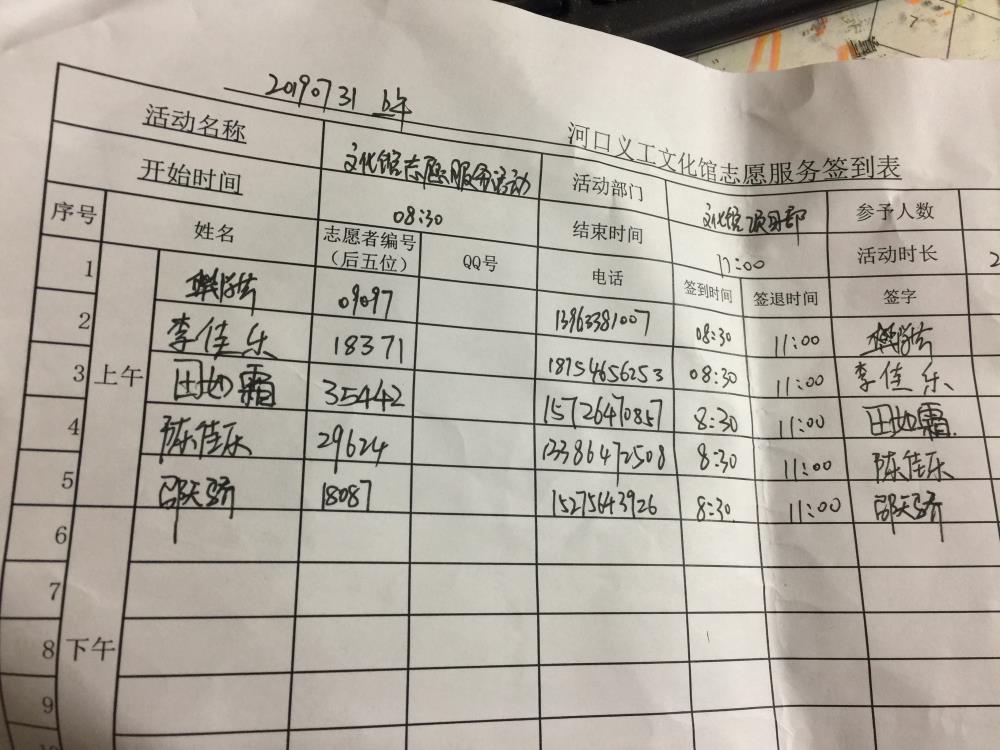 20190731 上午
河口义工文化馆志愿服务签到表
活动名称 文化馆志愿服务活动 活动部门 文化馆项目部 参予人数
开始时间 08:30 结束时间 11:00 活动时长 2
序号 姓名 志愿者编号（后五位） QQ号 电话 签到时间 签退时间 签字
上午
1 09097 13963381007 08:30 11:00
2 李佳乐 18371 18754656253 08:30 11:00 李佳乐
3 田地霜 35442 15726470857 8:30 11:00 田地霜
4 陈佳乐 29624 13386472508 8:30 11:00 陈佳乐
5 邵天骄 18087 15275643926 8:30 11:00 邵天骄
下午
6
7
8
9